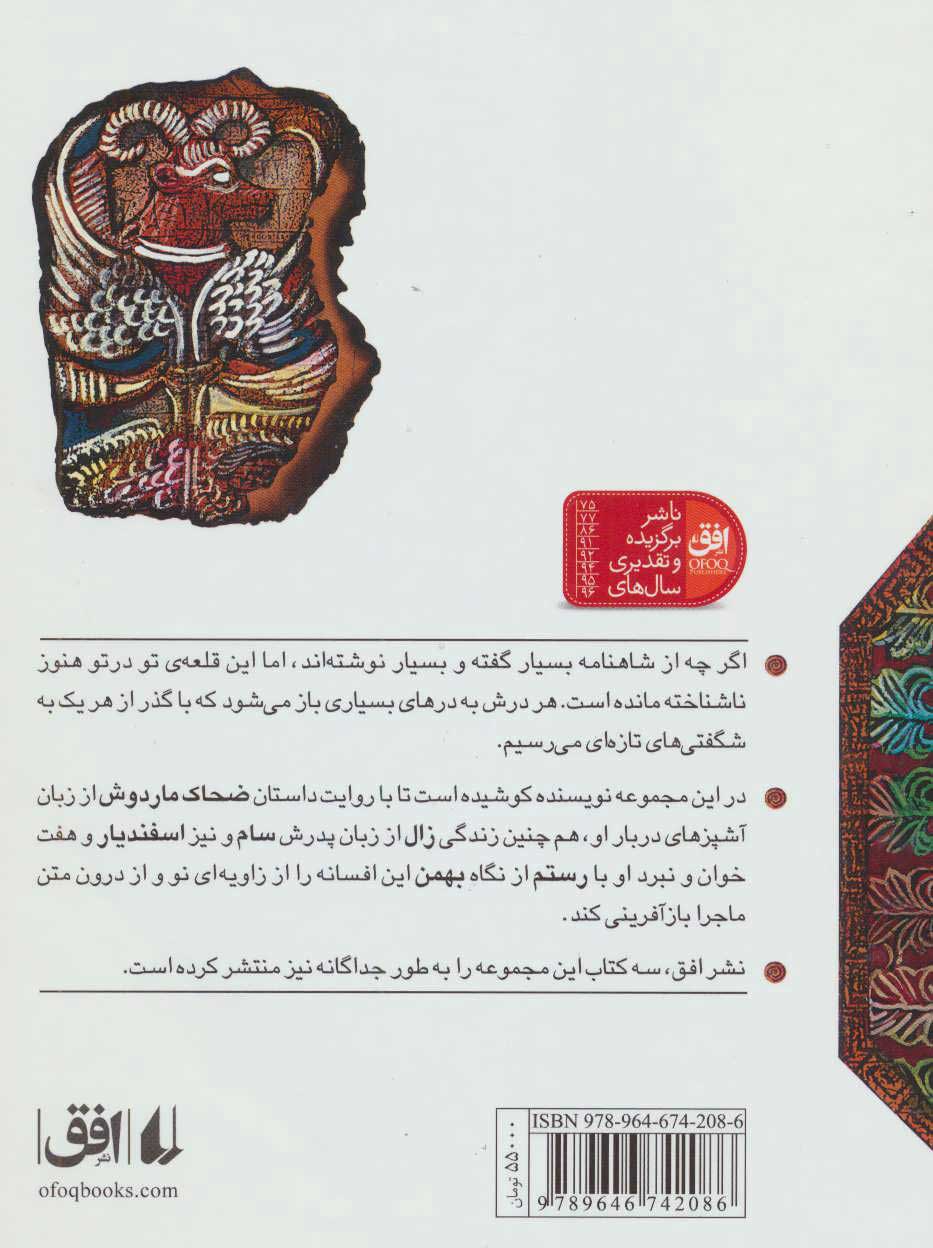 ناشر
برگزیده
و تقدیری
سال‌های
۷۵
۷۷
۸۶
۹۱
۹۲
۹۴
۹۵
۹۶
نشر
افق
OFOQ
PUBLISHERS
اگر چه از شاهنامه بسیار گفته و بسیار نوشته‌اند، اما این قلعه‌ی تو درتو هنوز
ناشناخته مانده است. هر درش به درهای بسیاری باز می‌شود که با گذر از هر یک به
شگفتی‌های تازه‌ای می‌رسیم.
در این مجموعه نویسنده کوشیده است تا با روایت داستان ضحاک ماردوش از زبان
آشپزهای دربار او، هم چنین زندگی زال از زبان پدرش سام و نیز اسفندیار و هفت
خوان و نبرد او با رستم از نگاه بهمن این افسانه را از زاویه‌ای نو و از درون متن
ماجرا بازآفرینی کند.
نشر افق، سه کتاب این مجموعه را به طور جداگانه نیز منتشر کرده است.
نشر افق
ofoqbooks.com
۵۵۰۰۰ تومان
ISBN 978-964-674-208-6
9 789646 742086